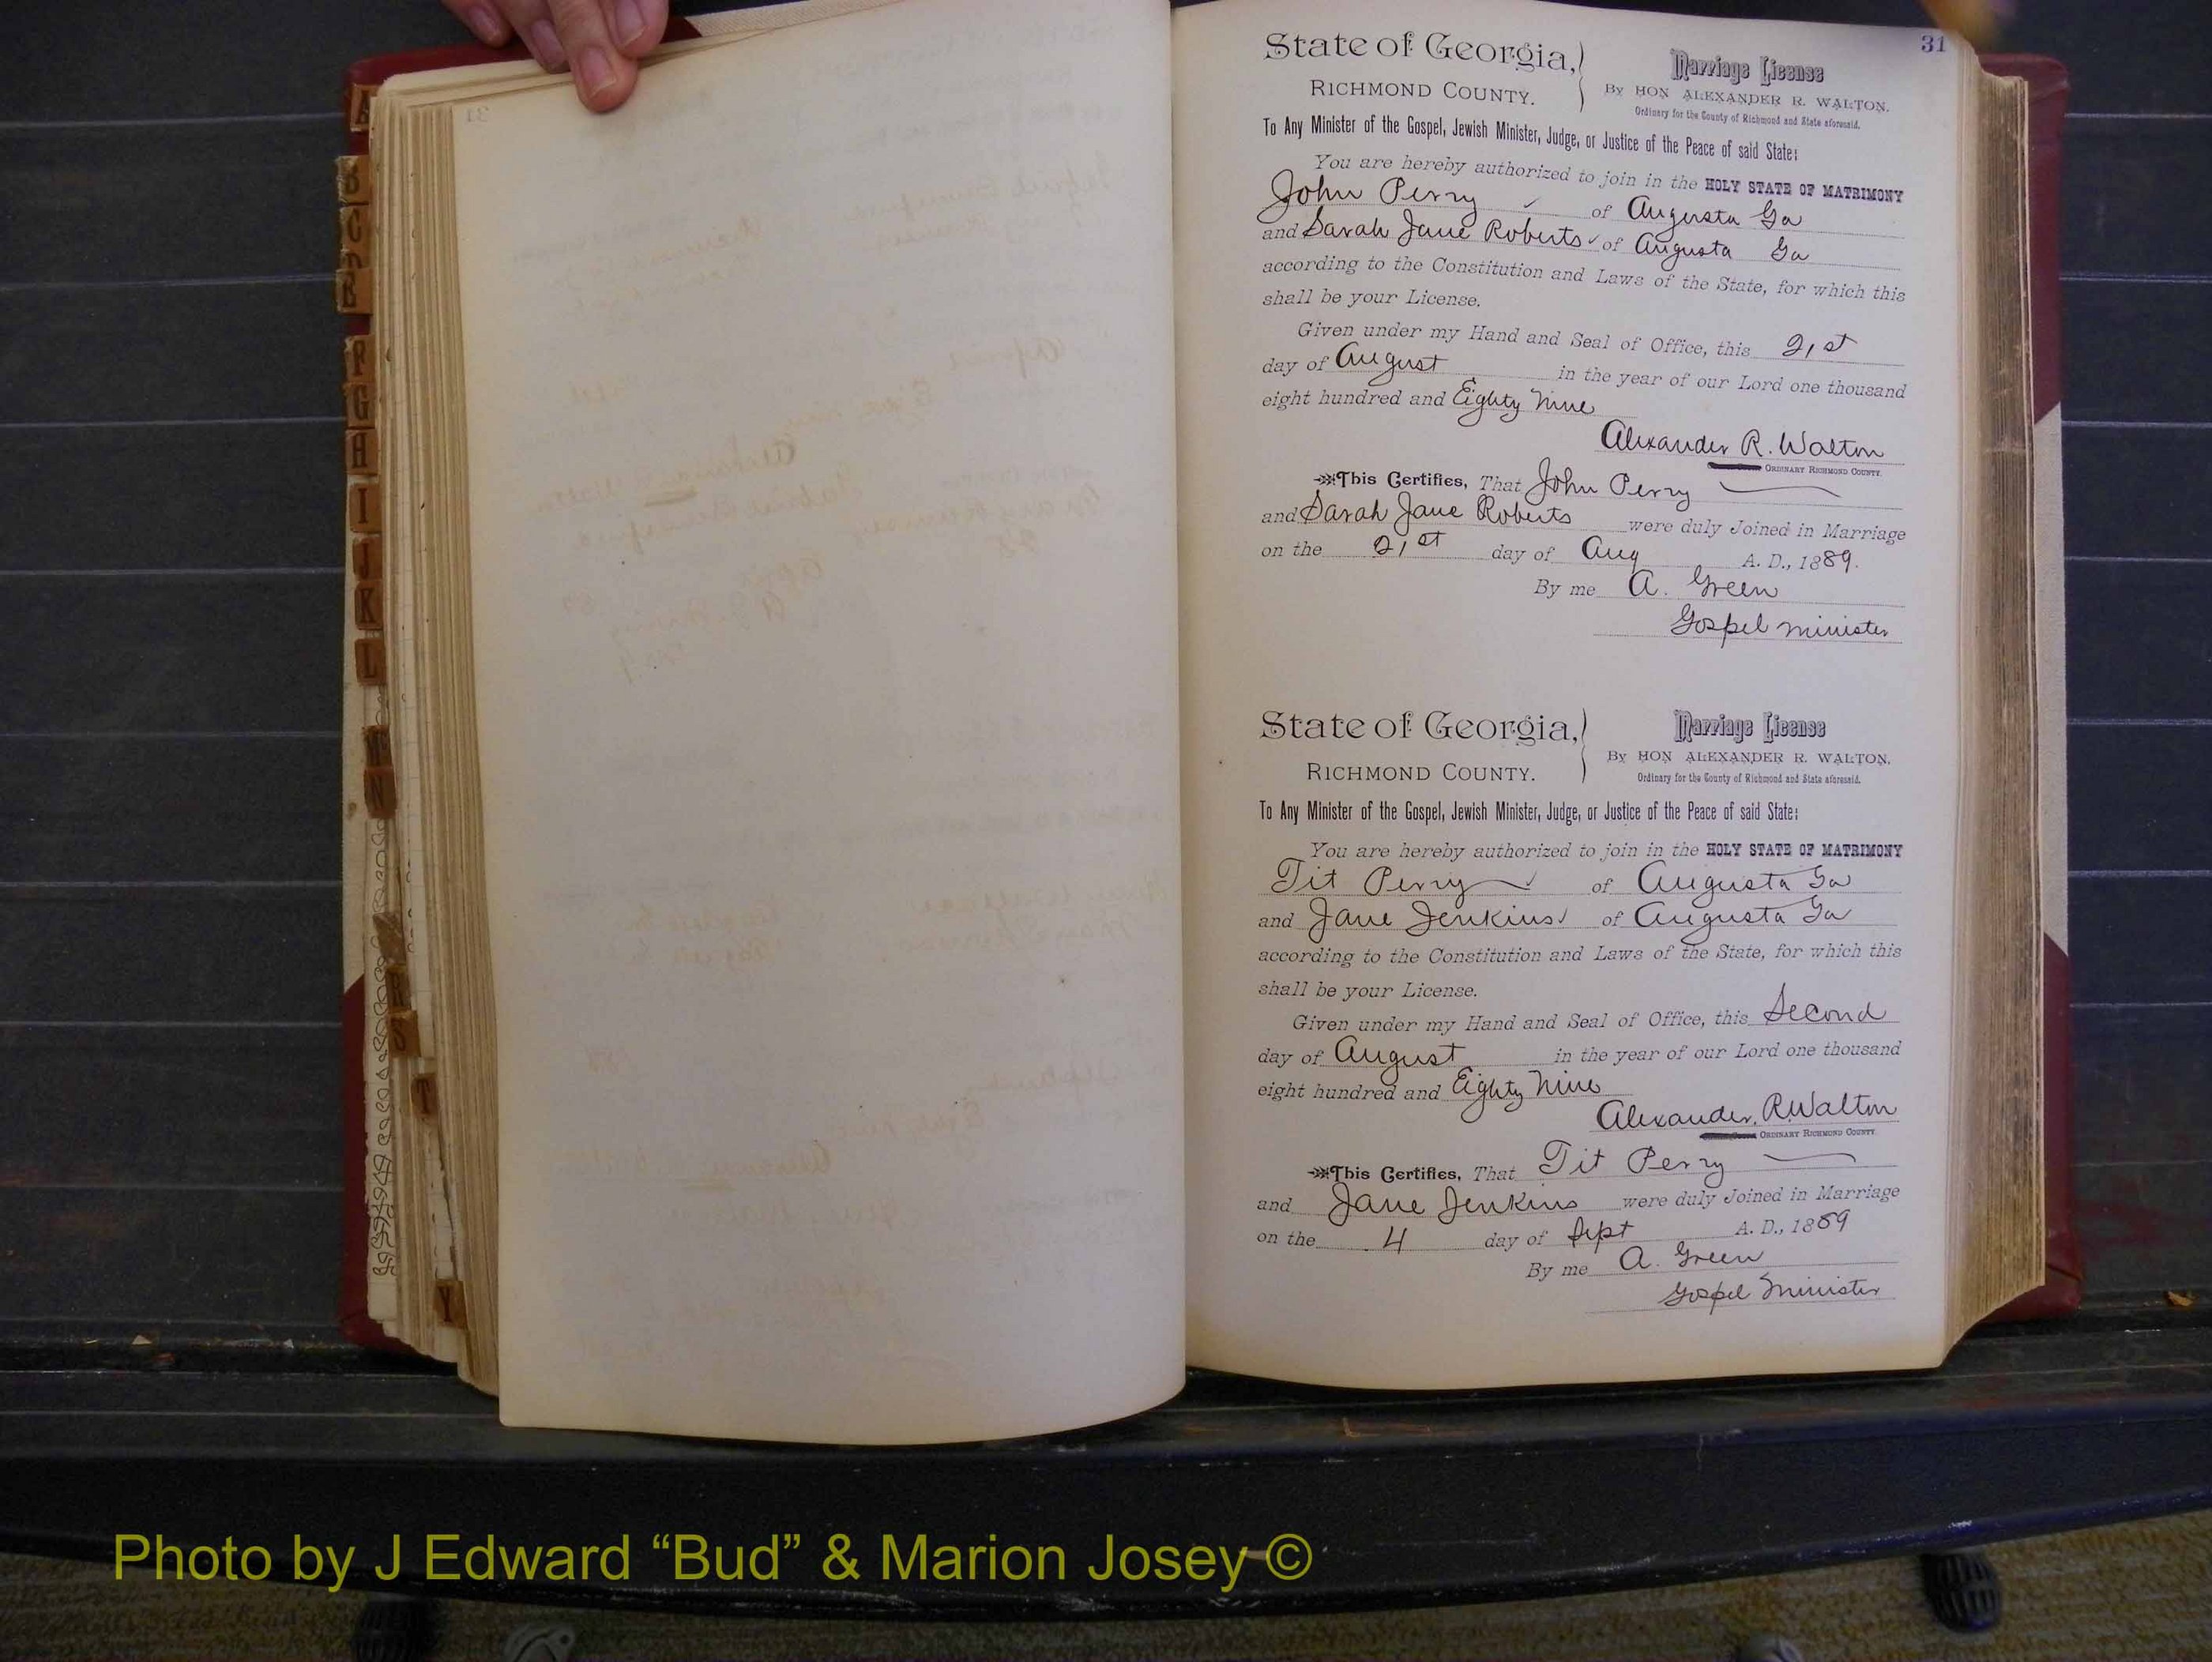 31
State of Georgia,
RICHMOND COUNTY.
Marriage License
By HON ALEXANDER R. WALTON,
Ordinary for the County of Richmond and State aforesaid.
To Any Minister of the Gospel, Jewish Minister, Judge, or Justice of the Peace of said State:
You are hereby authorized to join in the HOLY STATE OF MATRIMONY
John Perry of Augusta Ga
and Sarah Jane Roberts of Augusta Ga
according to the Constitution and Laws of the State, for which this
shall be your License.
Given under my Hand and Seal of Office, this 21st
day of August in the year of our Lord one thousand
eight hundred and Eighty Nine
Alexander R. Walton
ORDINARY RICHMOND COUNTY.
This Certifies, That John Perry
and Sarah Jane Roberts were duly Joined in Marriage
on the 21st day of Aug A. D., 1889.
By me A. Green
Gospel minister
State of Georgia,
RICHMOND COUNTY.
Marriage License
By HON ALEXANDER R. WALTON,
Ordinary for the County of Richmond and State aforesaid.
To Any Minister of the Gospel, Jewish Minister, Judge, or Justice of the Peace of said State:
You are hereby authorized to join in the HOLY STATE OF MATRIMONY
Tit Perry of Augusta Ga
and Jane Jenkins of Augusta Ga
according to the Constitution and Laws of the State, for which this
shall be your License.
Given under my Hand and Seal of Office, this Second
day of August in the year of our Lord one thousand
eight hundred and Eighty Nine
Alexander. R. Walton
ORDINARY RICHMOND COUNTY
This Certifies, That Tit Perry
and Jane Jenkins were duly Joined in Marriage
on the 4 day of Sept A. D., 1889
By me A. Green
Gospel Minister
A
B
C
F
G
H
I
J
K
L
N
S
T
Y
Photo by J Edward “Bud” & Marion Josey ©